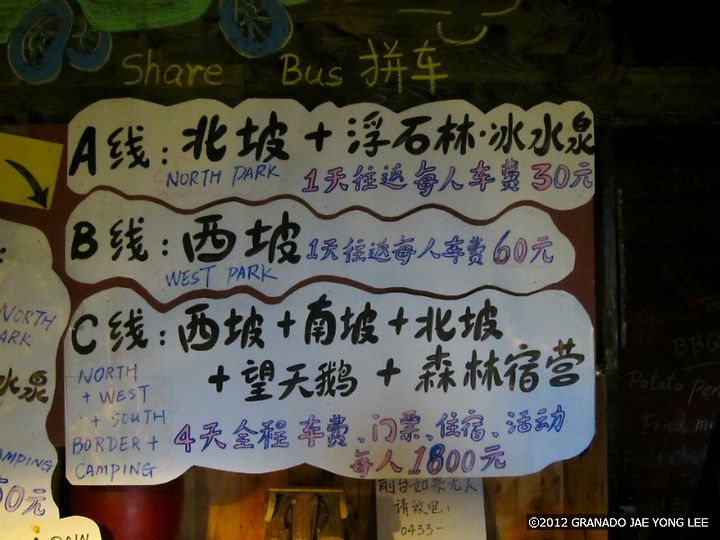 Share Bus 拼车
A线：北坡＋浮石林·冰水泉
NORTH PARK
1天往返每人车费30元
B线：西坡 1天往返每人车费60元
WEST PARK
C线：西坡＋南坡＋北坡
＋望天鹅＋森林宿营
NORTH
+ WEST
+ SOUTH
BORDER +
CAMPING
4天全程车费、门票、住宿、活动
每人1800元
NORTH
PARK
水泉
CAMPING
50元
前台如果无人
请致电：
0433-
BBQ
Potato
Fried
©2012 GRANADO JAE YONG LEE